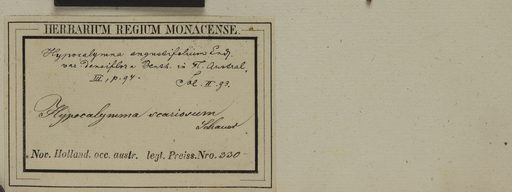 HERBARIUM REGIUM MONACENSE.
Hypocalymma angustifolium Endl.
var densiflora Benth. in Fl. Austral.
III, p. 94.
II. 93.
Hypocalymma scariosum
Schauer
Nov. Holland. occ. austr. legt. Preiss. Nro. 330